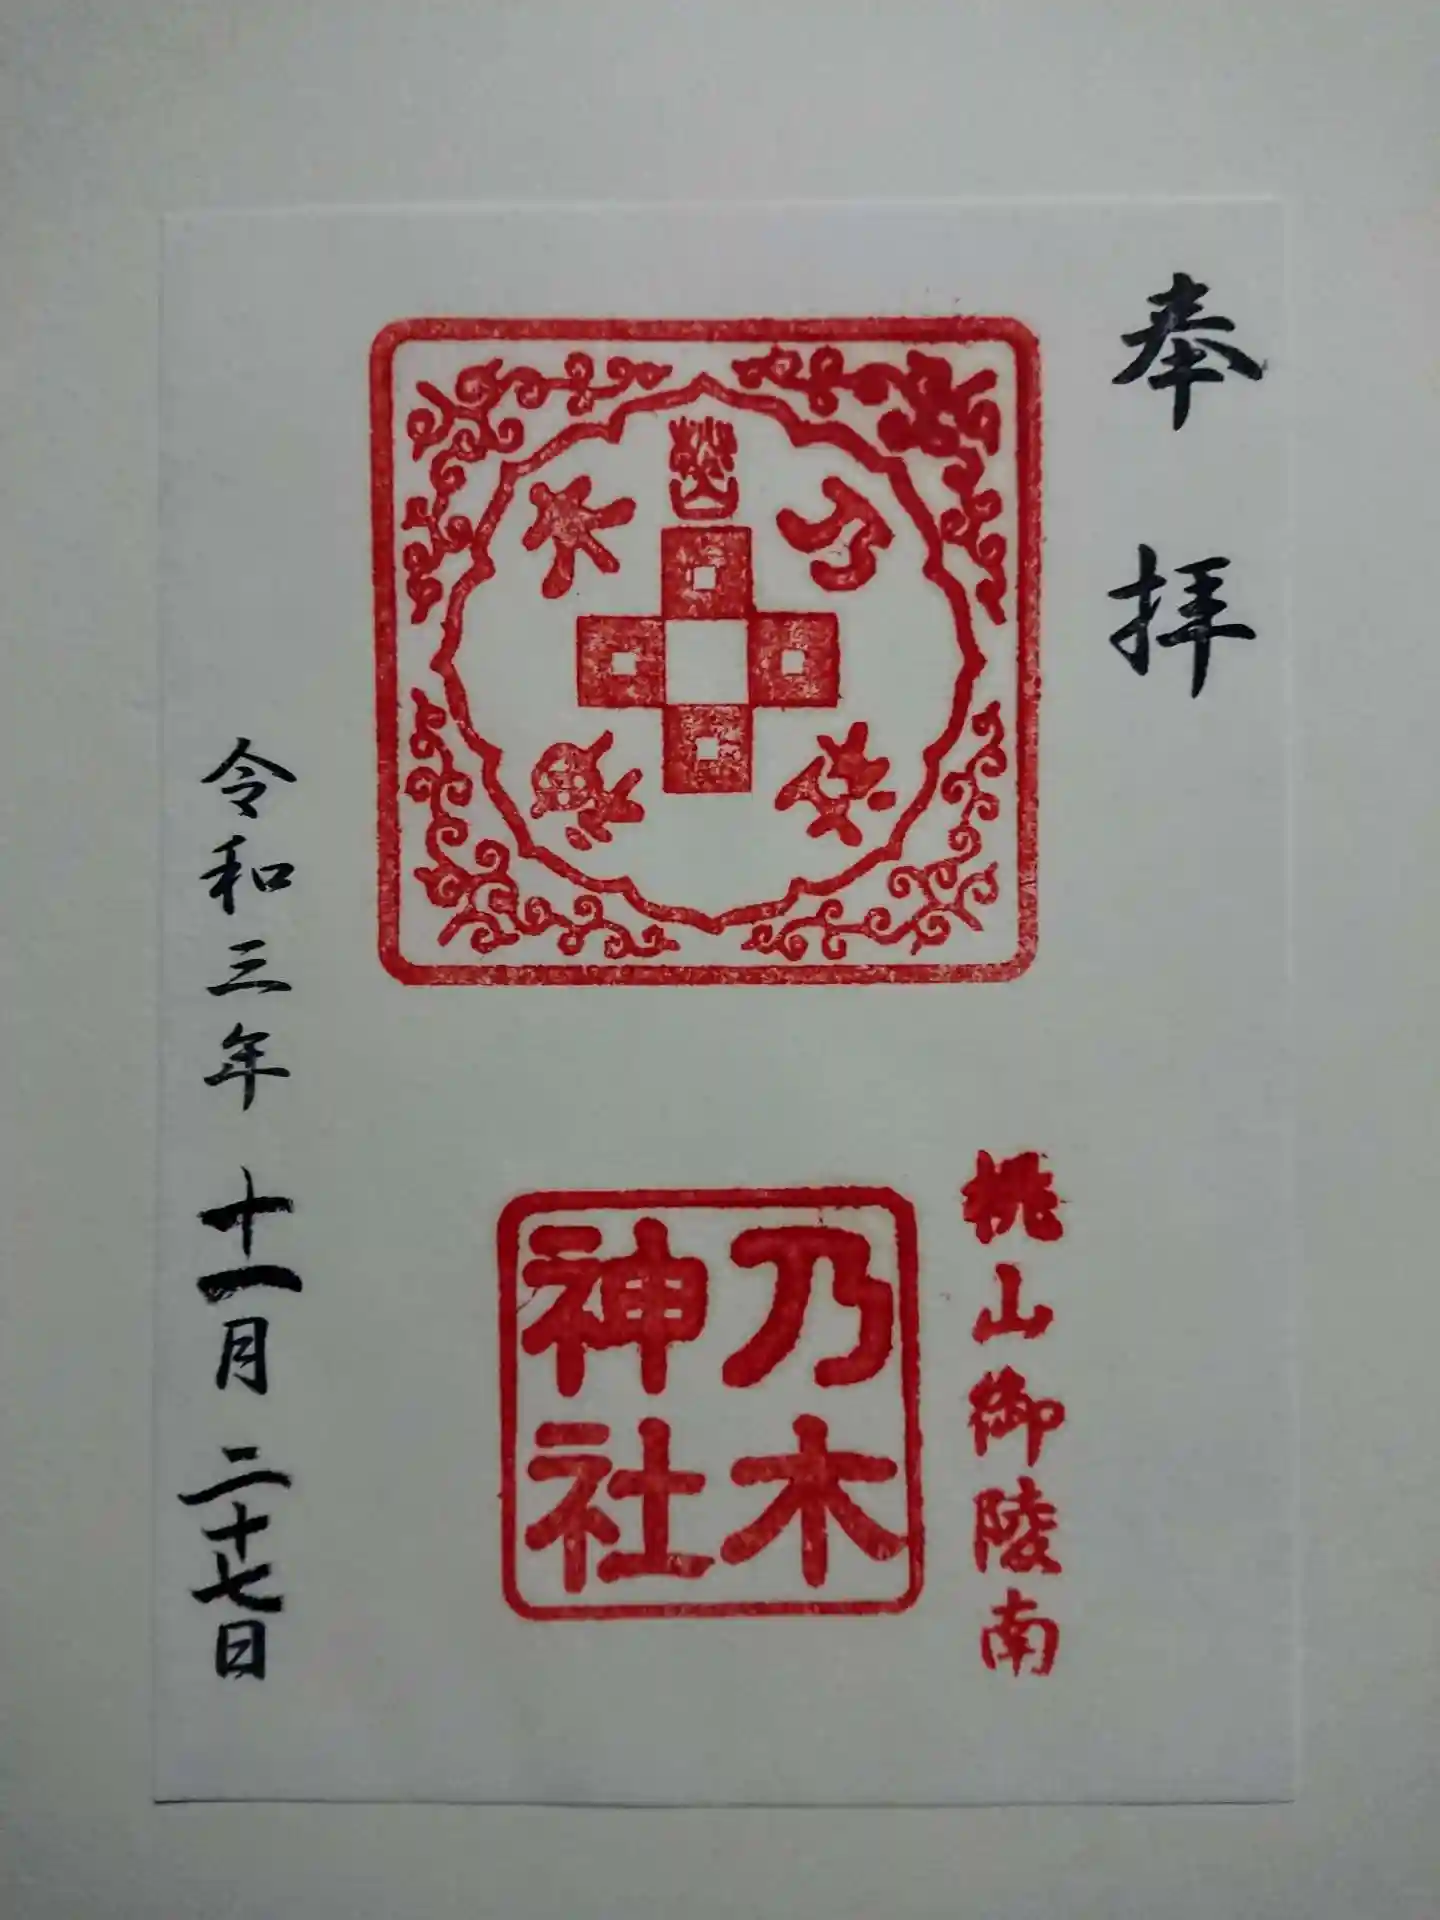 奉拝
桃山
乃木
桃山御陵南
乃木
神社
令和三年十一月二十七日